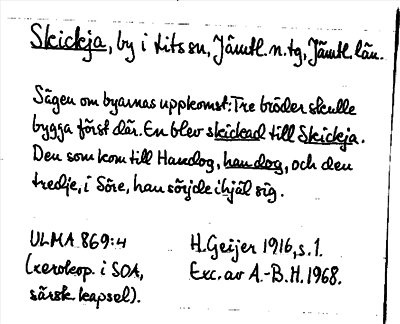 Skickja, by i Lits sn, Jämtl. n. tg, Jämtl. län.
Sägen om byarnas uppkomst: Tre bröder skulle
bygga först där. En blev skickad till Skickja.
Den som kom till Handog, han dog, och den
tredje, i Söre, han sörjde ihjäl sig.
ULMA 869:4 H. Geijer 1916, s. 1.
(xerokop. i SOA, Exc. av A.-B. H. 1968.
särsk. kapsel).